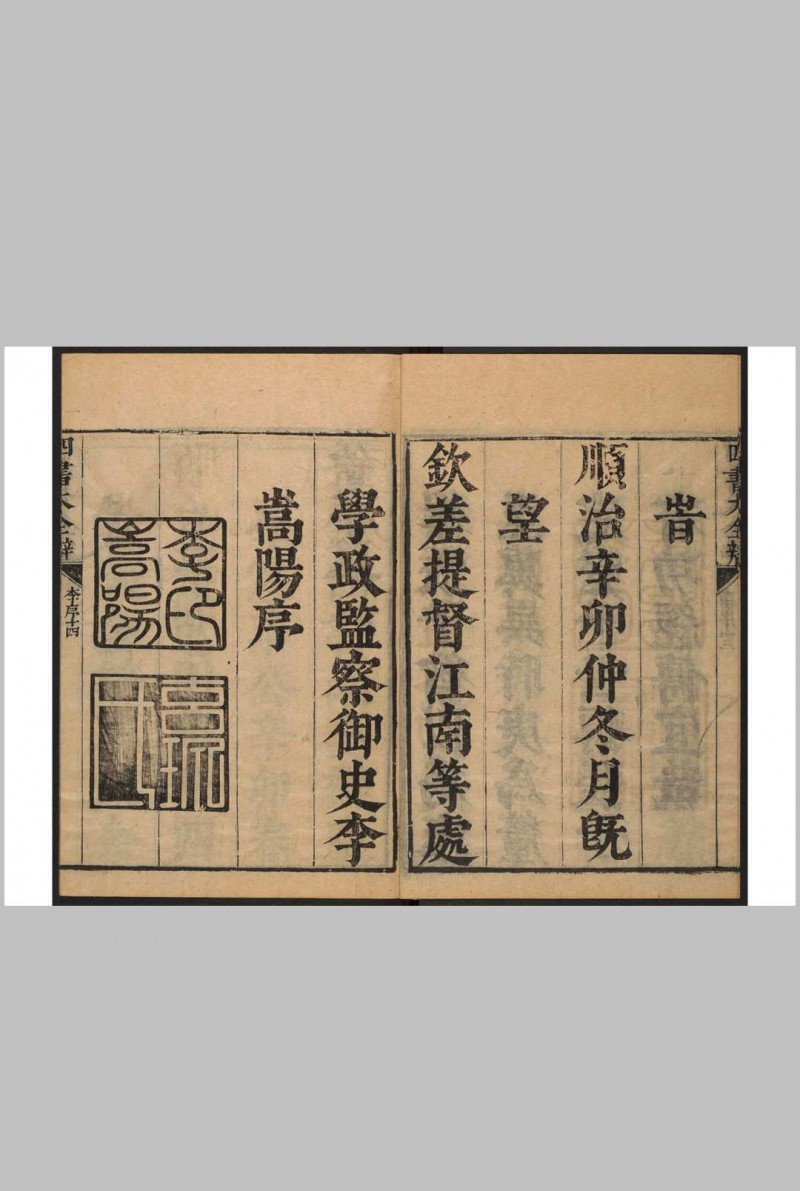 四書大全辯
旹
順治辛卯仲冬月既
望
欽差提督江南等處
學政監察御史李
嵩陽序
李印
嵩陽
四書大全辯
李序十四